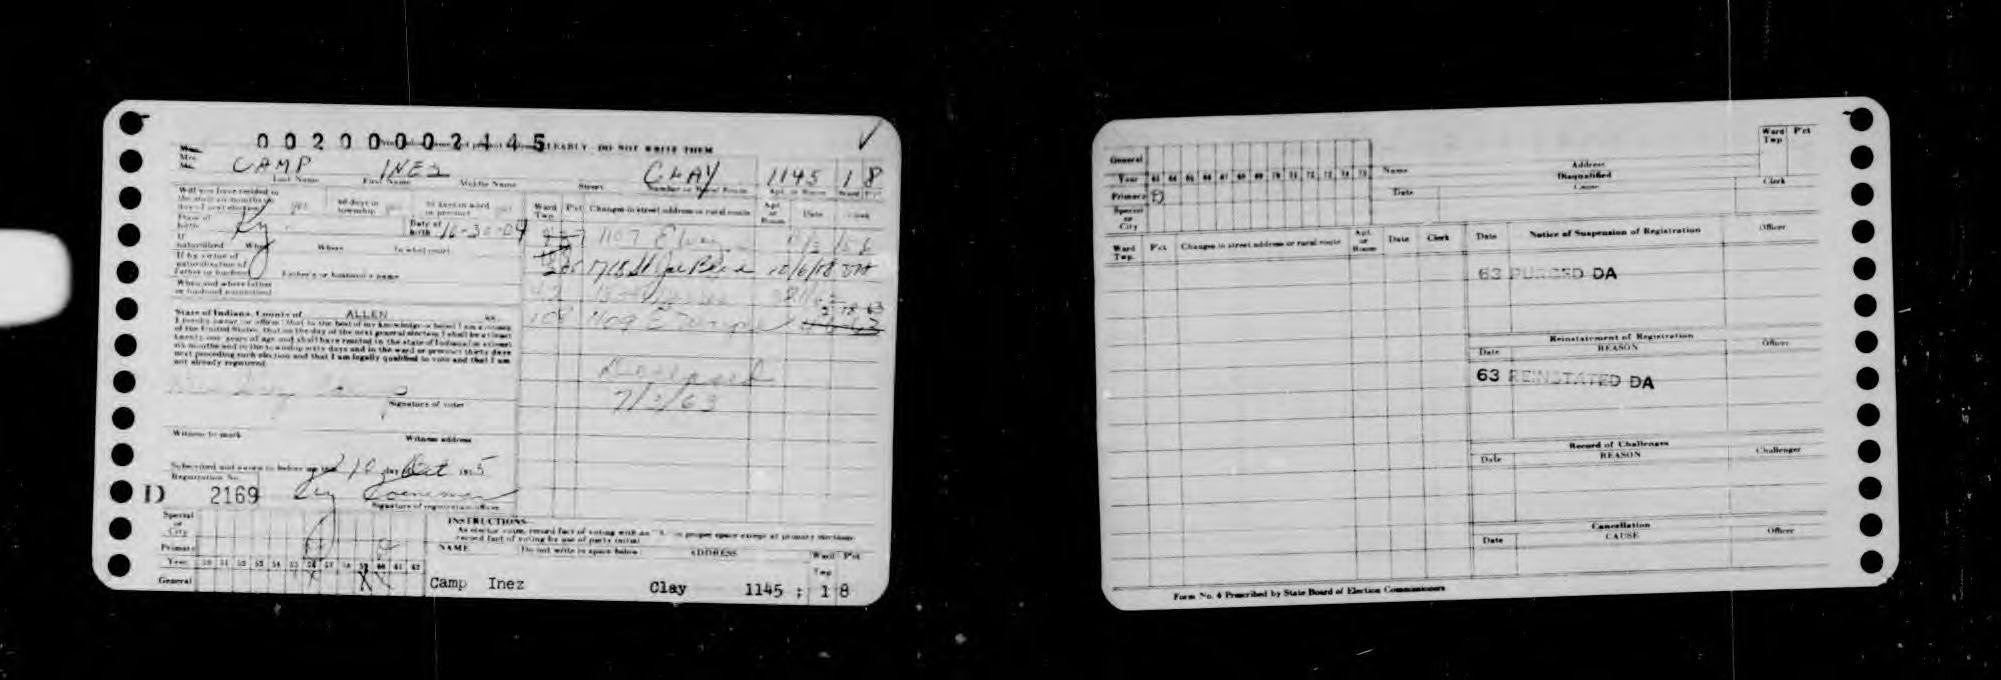 00200002445
CLEARLY - DO NOT WRITE THEM
Mrs.
CAMP INEZ CLAY 1145 1 8
Last Name First Name Middle Name Street Number or Rural Route Apt. or Room Ward Pct
Will you have resided in
the state six months on
days of next election yes 60 days in township yes 30 days in ward or precinct yes
Place of birth Ky. Date of birth 10-30-04
If naturalized When Where In what court
If by virtue of
naturalization of
father or husband Father's or husband's name
When and where father
or husband naturalized
State of Indiana, County of ALLEN ss.
I hereby swear (or affirm) that to the best of my knowledge or belief I am a citizen
of the United States, that on the day of the next general election I shall be at least
twenty-one years of age and shall have resided in the state of Indiana at least
six months and in the township sixty days and in the ward or precinct thirty days
next preceding such election and that I am legally qualified to vote and that I am
not already registered.
Signature of voter
Witness to mark Witness address
Subscribed and sworn to before me this 10 day Oct 1955
Registration No.
D 2169
Signature of registration officer
Ward Twp. Pct Changes in street address or rural route Apt. or Room Date Clerk
1107 E
1718 St Joe Blvd 10/6/58
1109 E
Deceased
7/3/63
Special or City
Primary
Year 50 51 52 53 54 55 56 57 58 59 60 61 62
General
INSTRUCTIONS
As elector votes, record fact of voting with an "X" in proper space except at primary elections
record fact of voting by use of party initial
NAME Do not write in space below ADDRESS Ward Twp Pct
Camp Inez Clay 1145 ; 1 8
General
Year 63 64 65 66 67 68 69 70 71 72 73 74 75
Primary D
Special or City
Name Address Ward Twp Pct
Disqualified
Date Cause Clerk
Ward Twp. Pct Changes in street address or rural route Apt. or Room Date Clerk
Date Notice of Suspension of Registration Officer
63 PURGED DA
Reinstatement of Registration
Date REASON Officer
63 REINSTATED DA
Record of Challenges
Date REASON Challenger
Cancellation
Date CAUSE Officer
Form No. 4 Prescribed by State Board of Election Commissioners